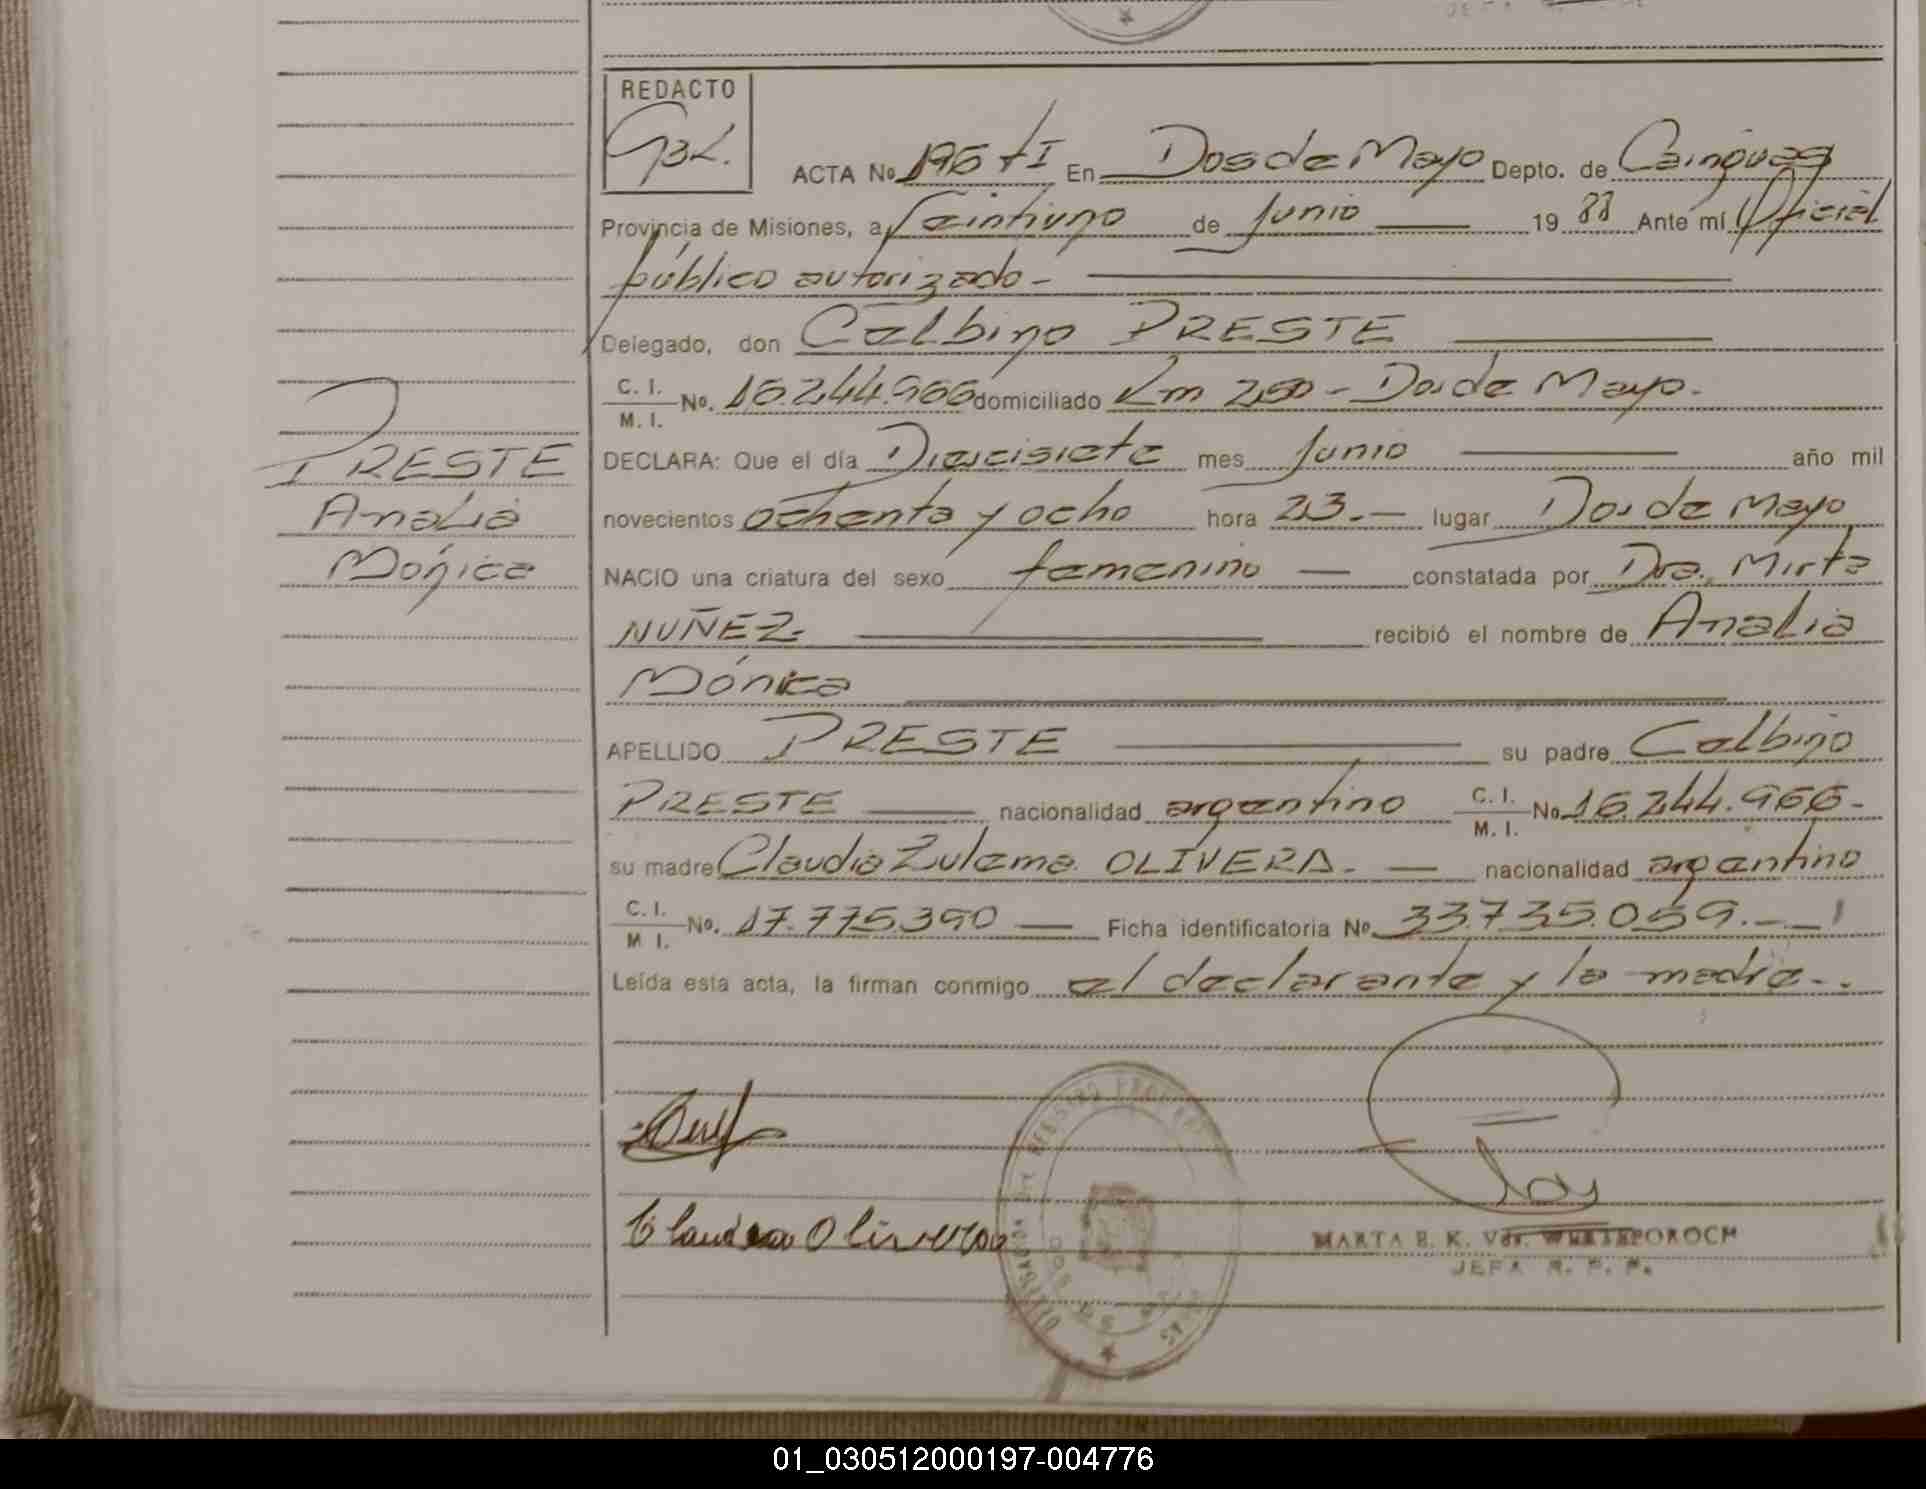 REDACTO
ACTA No 196 tI En Dos de Mayo Depto. de Cainguas
Provincia de Misiones, a Veintiuno de Junio 19 88 Ante mí Oficial
público autorizado -
Delegado, don Celbino PRESTE
C. I. / M. I. No. 16.244.966 domiciliado Km 250 - Dos de Mayo.
DECLARA: Que el día Diecisiete mes Junio año mil
novecientos ochenta y ocho hora 23.- lugar Dos de Mayo
NACIO una criatura del sexo femenino constatada por Dra. Mirta
NUÑEZ. recibió el nombre de Analia
Mónica
APELLIDO PRESTE su padre Celbino
PRESTE nacionalidad argentino C. I. / M. I. No 16.244.966-
su madre Claudia Zulema OLIVERA. nacionalidad argentino
C. I. / M I. No. 17.775.390 Ficha identificatoria No 33.735.059.-
Leída esta acta, la firman conmigo el declarante y la madre.
PRESTE
Analia
Mónica
Claudia Olivera
MARTA E. K. Vda.
JEFA R. P. P.
01_030512000197-004776